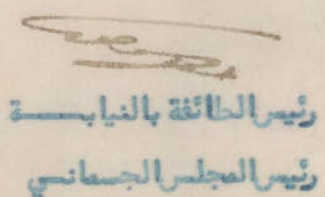 رئيس الطائفة بالنيابـــــة
رئيس المجلس الجسمانـي